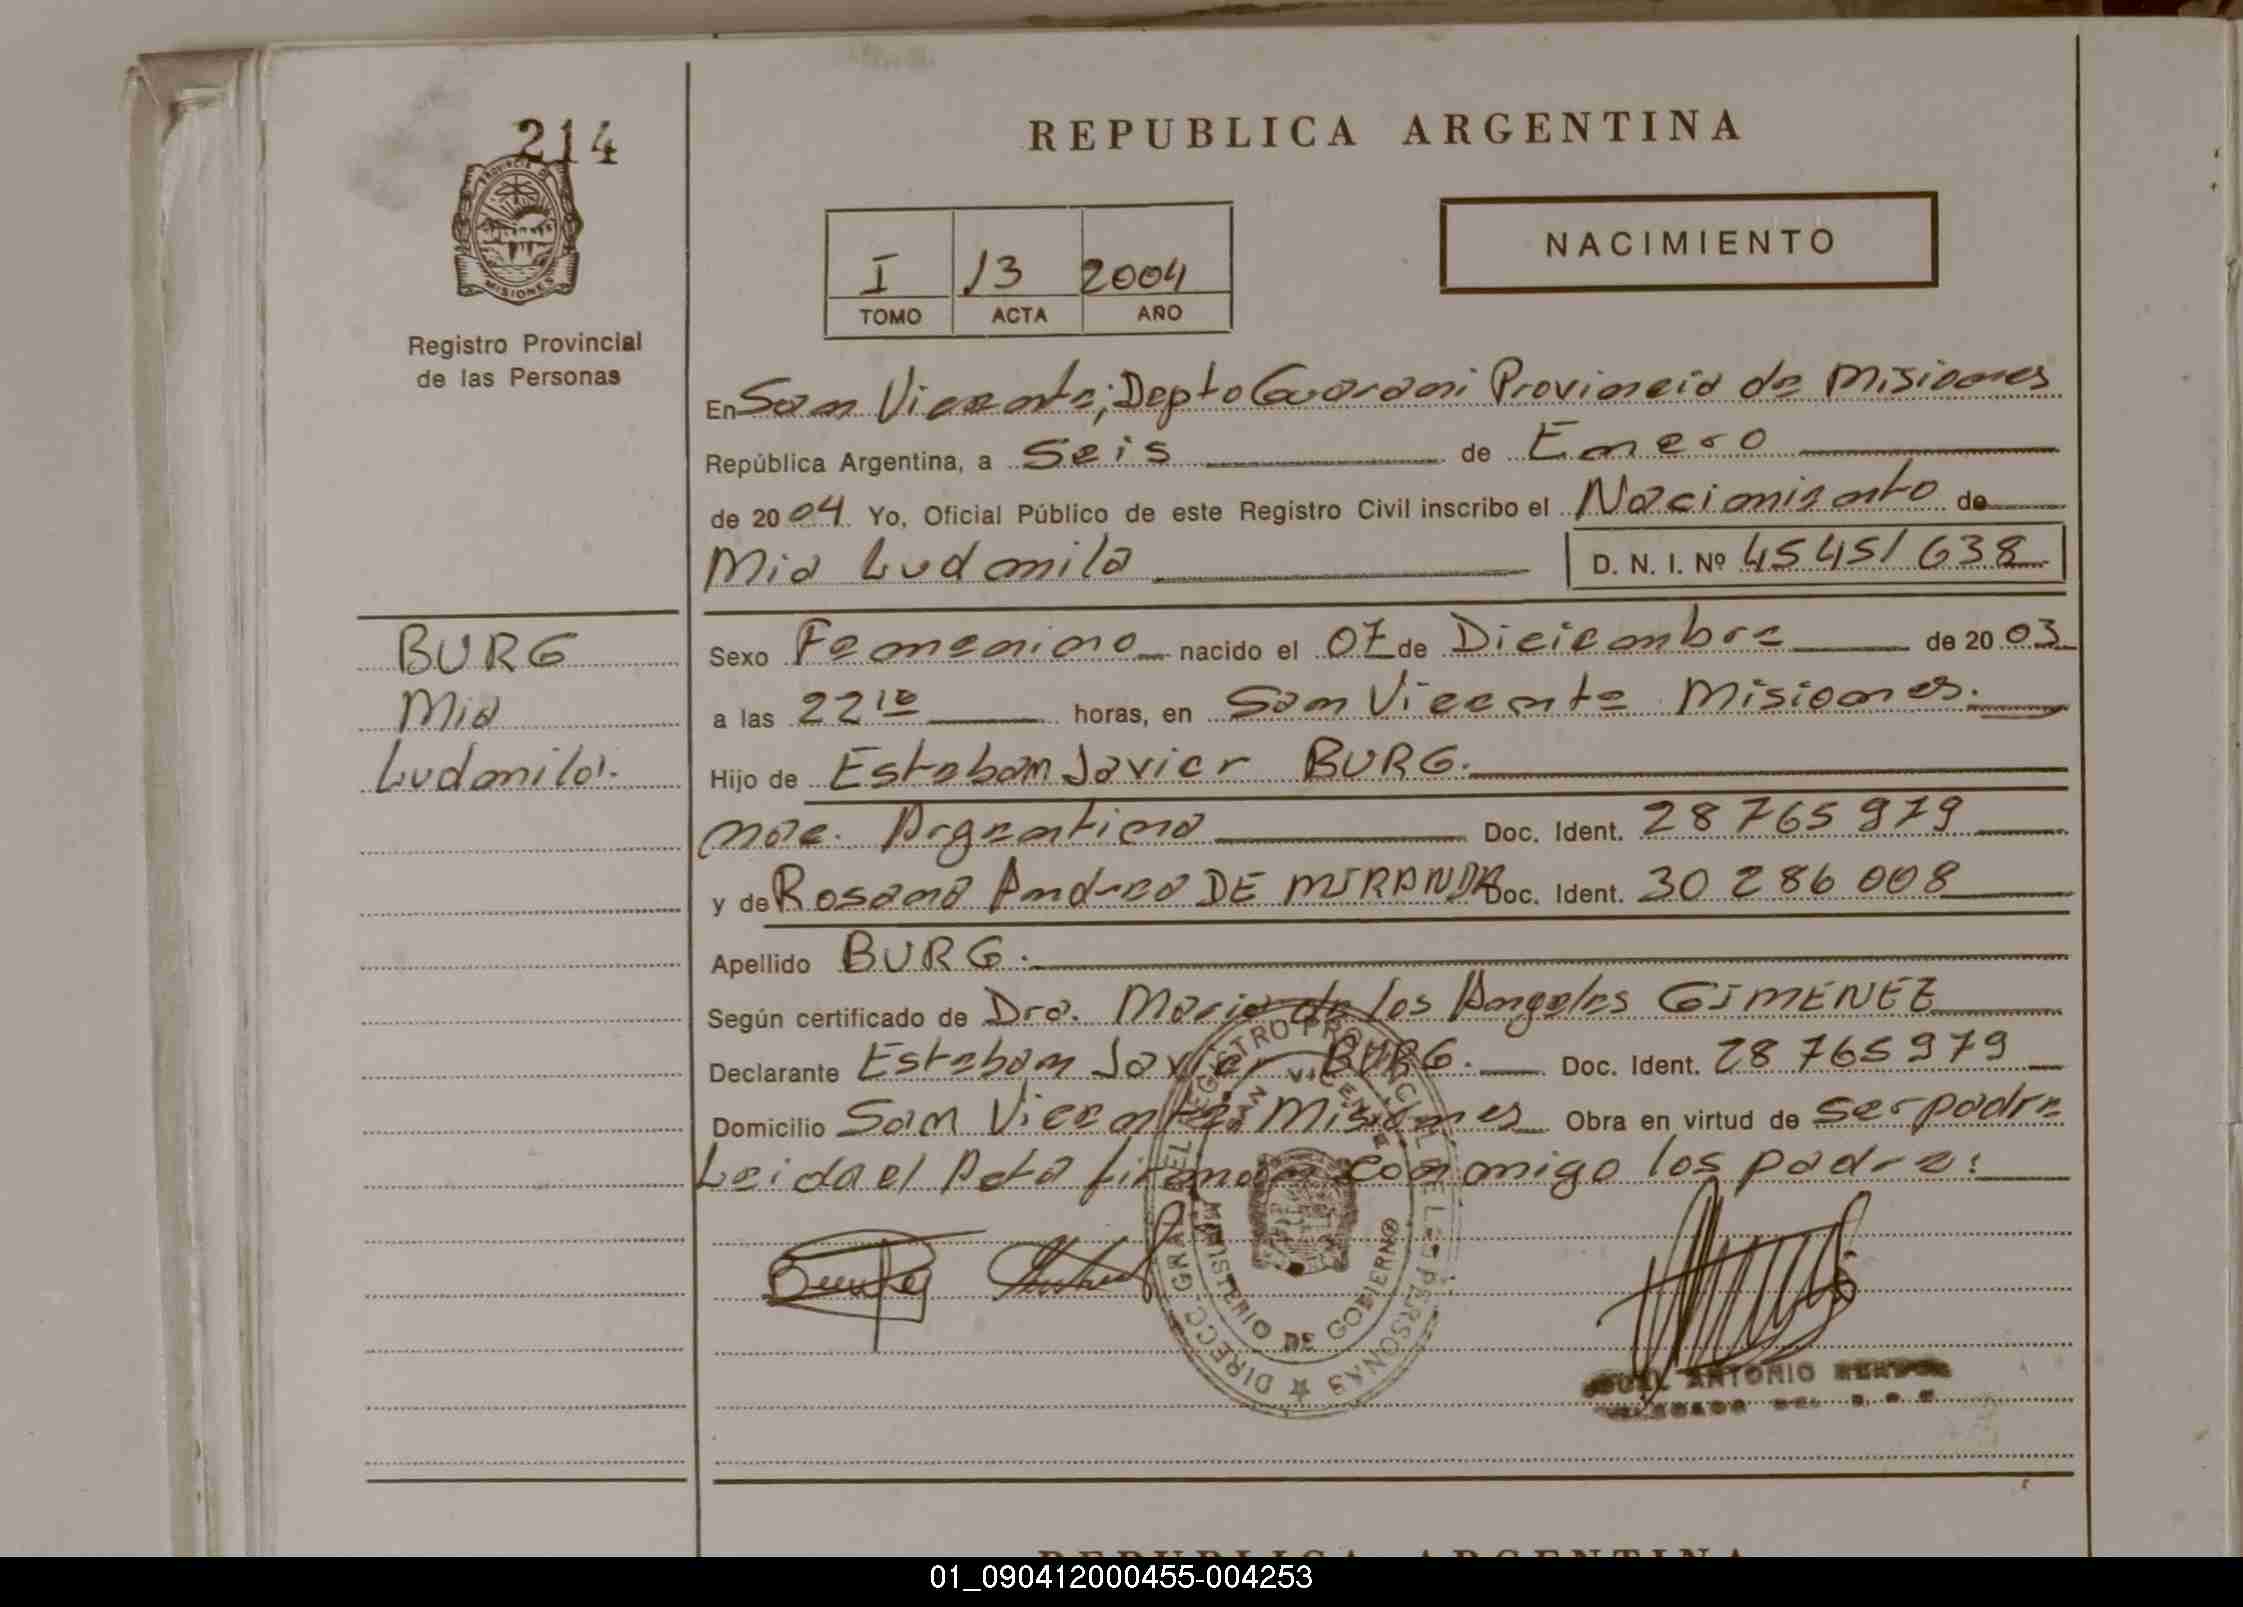 214
PROVINCIA DE
MISIONES
Registro Provincial
de las Personas
REPUBLICA ARGENTINA
I 13 2004
TOMO ACTA AÑO
NACIMIENTO
En San Vicente; Depto Guarani Provincia de Misiones
República Argentina, a Seis de Enero
de 2004 Yo, Oficial Público de este Registro Civil inscribo el Nacimiento de
Mia Ludmila D. N. I. Nº 45451638
BURG
Mia
Ludmila.
Sexo Femenino nacido el 07 de Diciembre de 2003
a las 22 10 horas, en San Vicente Misiones.
Hijo de Esteban Javier BURG.
nac. Argentina Doc. Ident. 28765979
y de Rosana Andrea DE MIRANDA Doc. Ident. 30286008
Apellido BURG.
Según certificado de Dra. Maria de los Angeles GIMENEZ
Declarante Esteban Javier BURG. Doc. Ident. 28765979
Domicilio San Vicente, Misiones Obra en virtud de ser padre
Leida el Acta firman conmigo los padre:
DIRECC. GRAL. DEL REGISTRO PROVINCIAL DE LAS PERSONAS
SAN VICENTE
MINISTERIO DE GOBIERNO
ANTONIO
REPUBLICA ARGENTINA
01_090412000455-004253